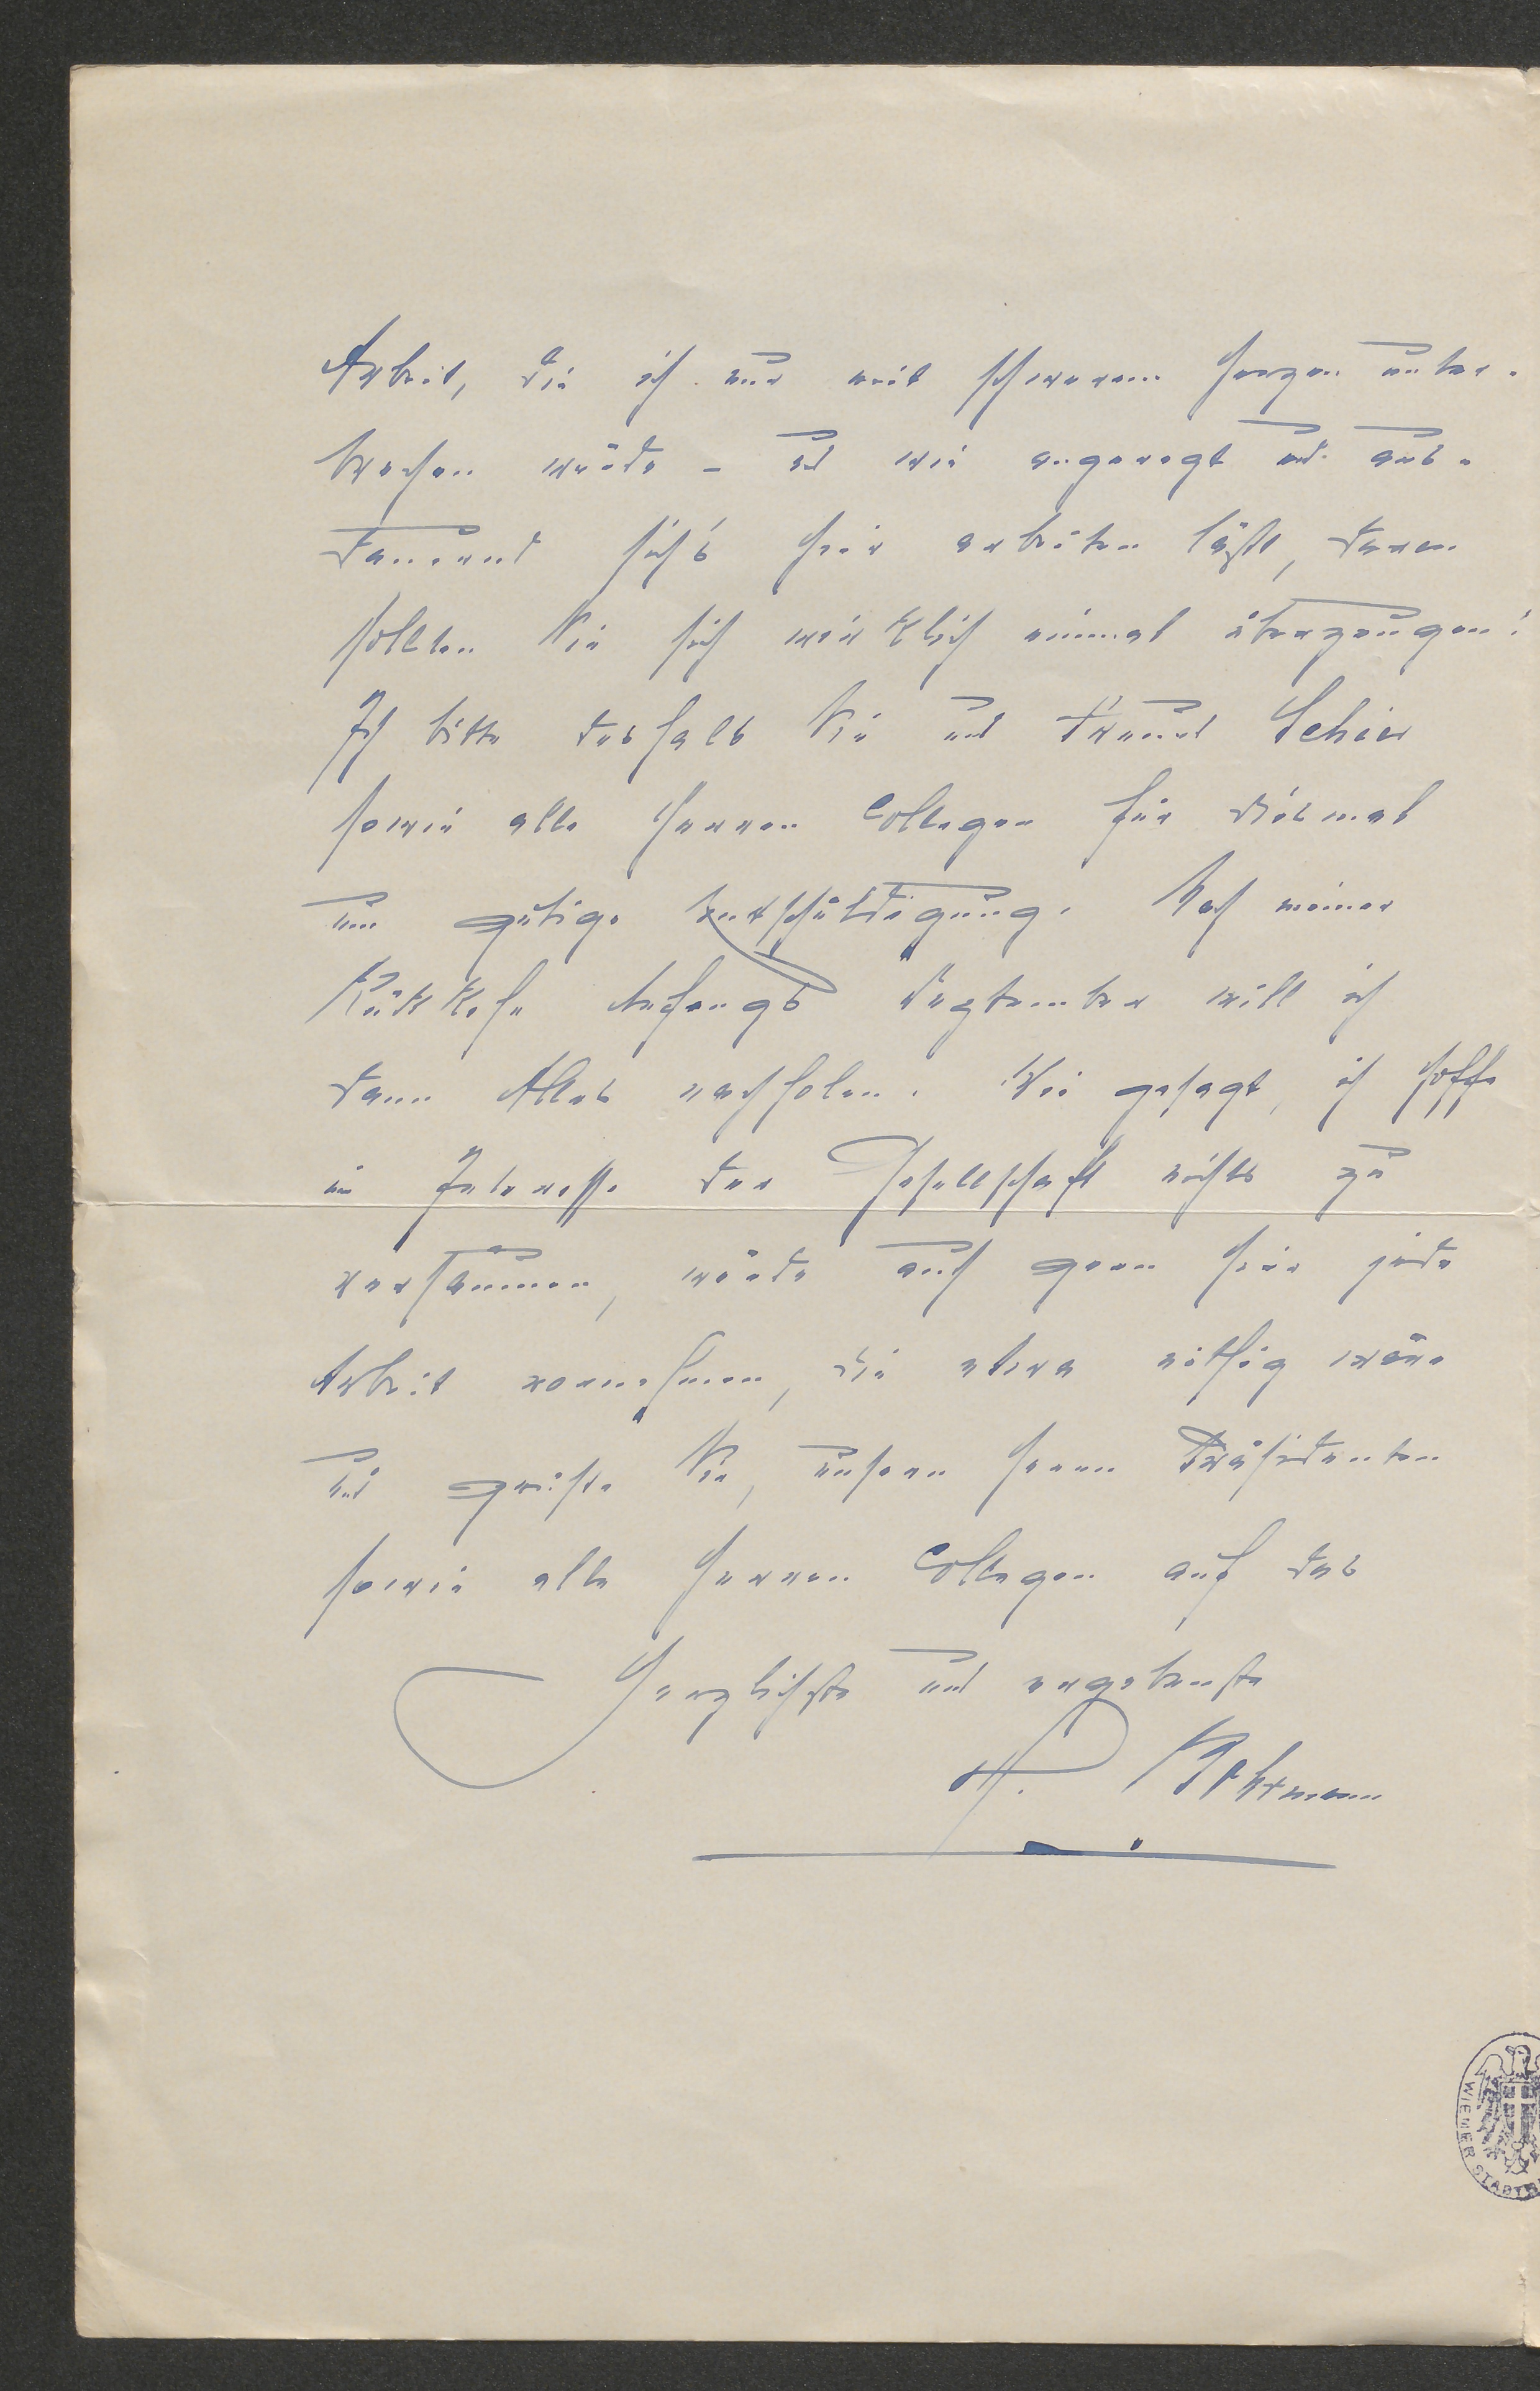 Arbeit, die ich nur mit schwerem Herzen unter-
brechen würde – und wie angeregt und aus-
dauernd sich's hier arbeiten läßt, davon
sollten Sie sich wirklich einmal überzeugen!
Ich bitte deshalb Sie und Freund Schier
sowie alle Herren Collegen für diesmal
um gütige Entschuldigung. Nach meiner
Rückkehr Anfangs September will ich
dann Alles nachholen. Wie gesagt, ich hoffe
im Interesse der Gesellschaft nichts zu
versäumen, würde auch gern hier jede
Arbeit vornehmen, die etwa nöthig wäre
und grüße Sie, unseren Herrn Präsidenten
sowie alle Herren Collegen auf das
Herzlichste und ergebenste
WIENER STADT